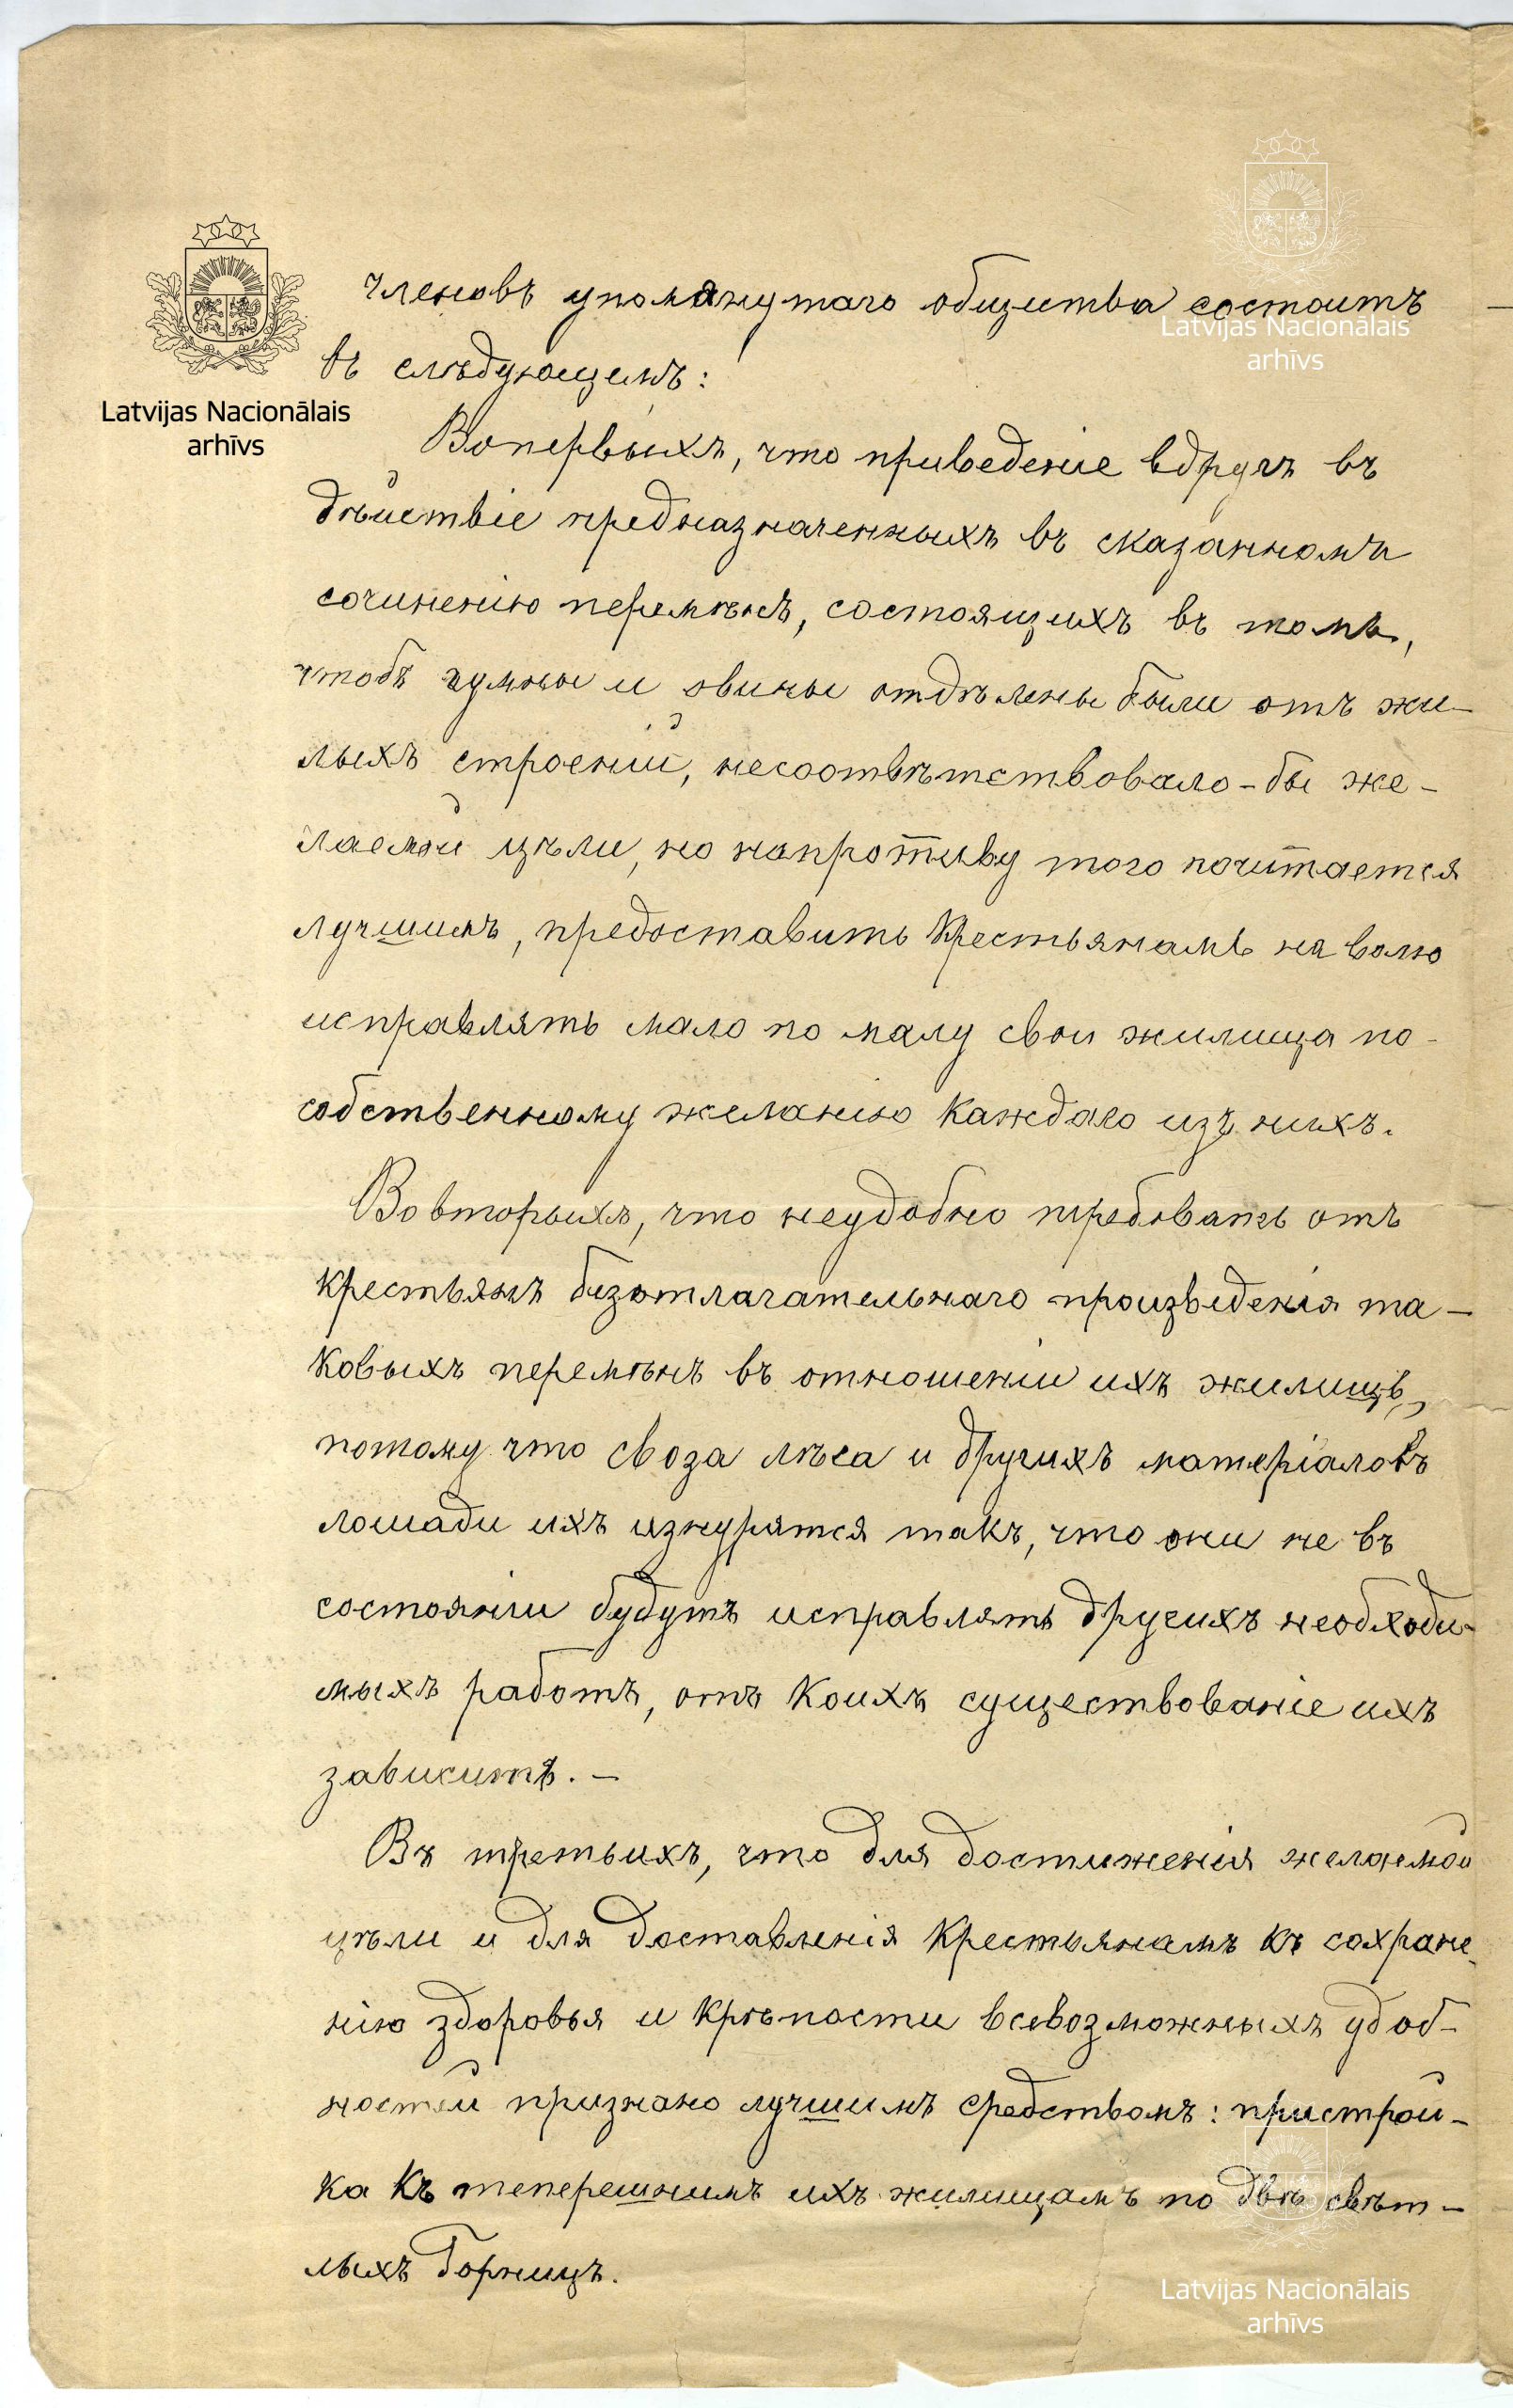 членовъ упомянутаго общества состоитъ
въ слѣдующемъ:
Вопервыхъ, что приведеніе вдругъ въ
дѣйствіе предназначенныхъ въ сказанномъ
сочиненію перемѣнъ, состоящихъ въ томъ,
чтобъ гумны и овины отдѣлены были отъ жи-
лыхъ строеній, несоотвѣтствовало-бы же-
лаемой цѣли, но напротиву того почитается
лучшимъ, предоставить крестьянамъ на волю
исправлять мало по малу свои жилища по-
собственному желанію каждаго изъ нихъ.
Вовторыхъ, что неудобно требовать отъ
крестьянъ безотлагательнаго произведенія та-
ковыхъ перемѣнъ въ отношеніи ихъ жилищъ,
потому что своза лѣса и другихъ матеріаловъ
лошади ихъ изнурятся такъ, что они не въ
состояніи будутъ исправлять другихъ необходи-
мыхъ работъ, отъ коихъ существованіе ихъ
зависитъ. –
Въ третьихъ, что для достиженія желаемой
цѣли и для доставленія крестьянамъ къ сохране-
нію здоровья и крѣпости всевозможныхъ удоб-
ностей признано лучшимъ средствомъ: пристрой-
ка къ теперешнимъ ихъ жилищамъ по двѣ свѣт-
лыхъ Горницъ.
Latvijas Nacionālais
arhīvs
Latvijas Nacionālais
arhīvs
Latvijas Nacionālais
arhīvs